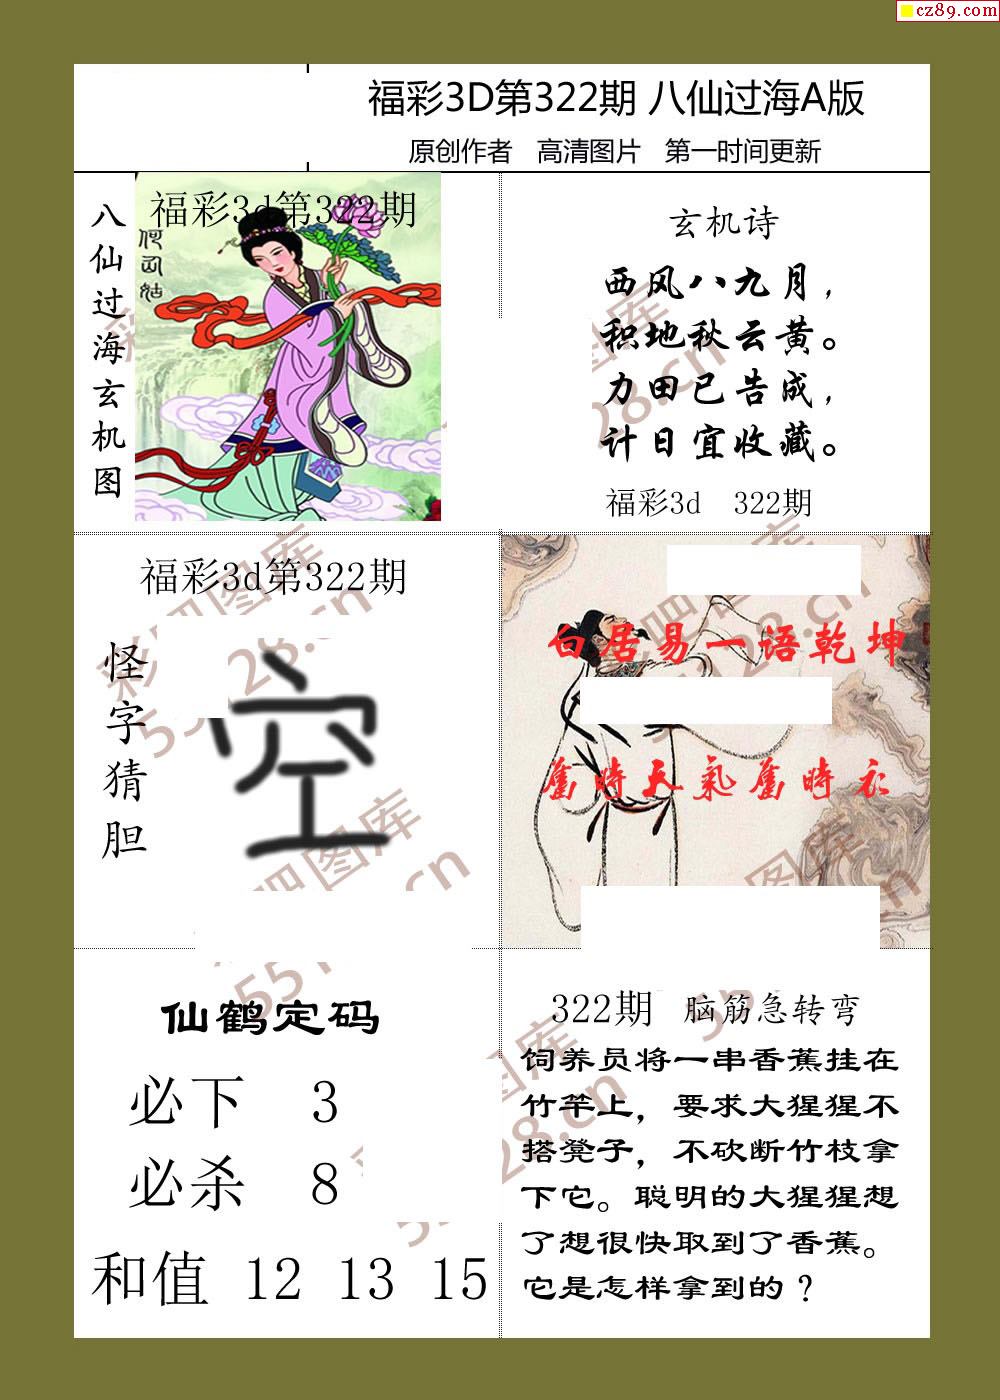 cz89.com
福彩3D第322期 八仙过海A版
原创作者 高清图片 第一时间更新
八仙过海玄机图
福彩3d第322期
何仙姑
玄机诗
西风八九月，
积地秋云黄。
力田已告成，
计日宜收藏。
福彩3d 322期
福彩3d第322期
怪字猜胆
空
白居易一语乾坤
舊時天氣舊時衣
仙鹤定码
必下 3
必杀 8
和值 12 13 15
322期 脑筋急转弯
饲养员将一串香蕉挂在
竹竿上，要求大猩猩不
搭凳子，不砍断竹枝拿
下它。聪明的大猩猩想
了想很快取到了香蕉。
它是怎样拿到的？